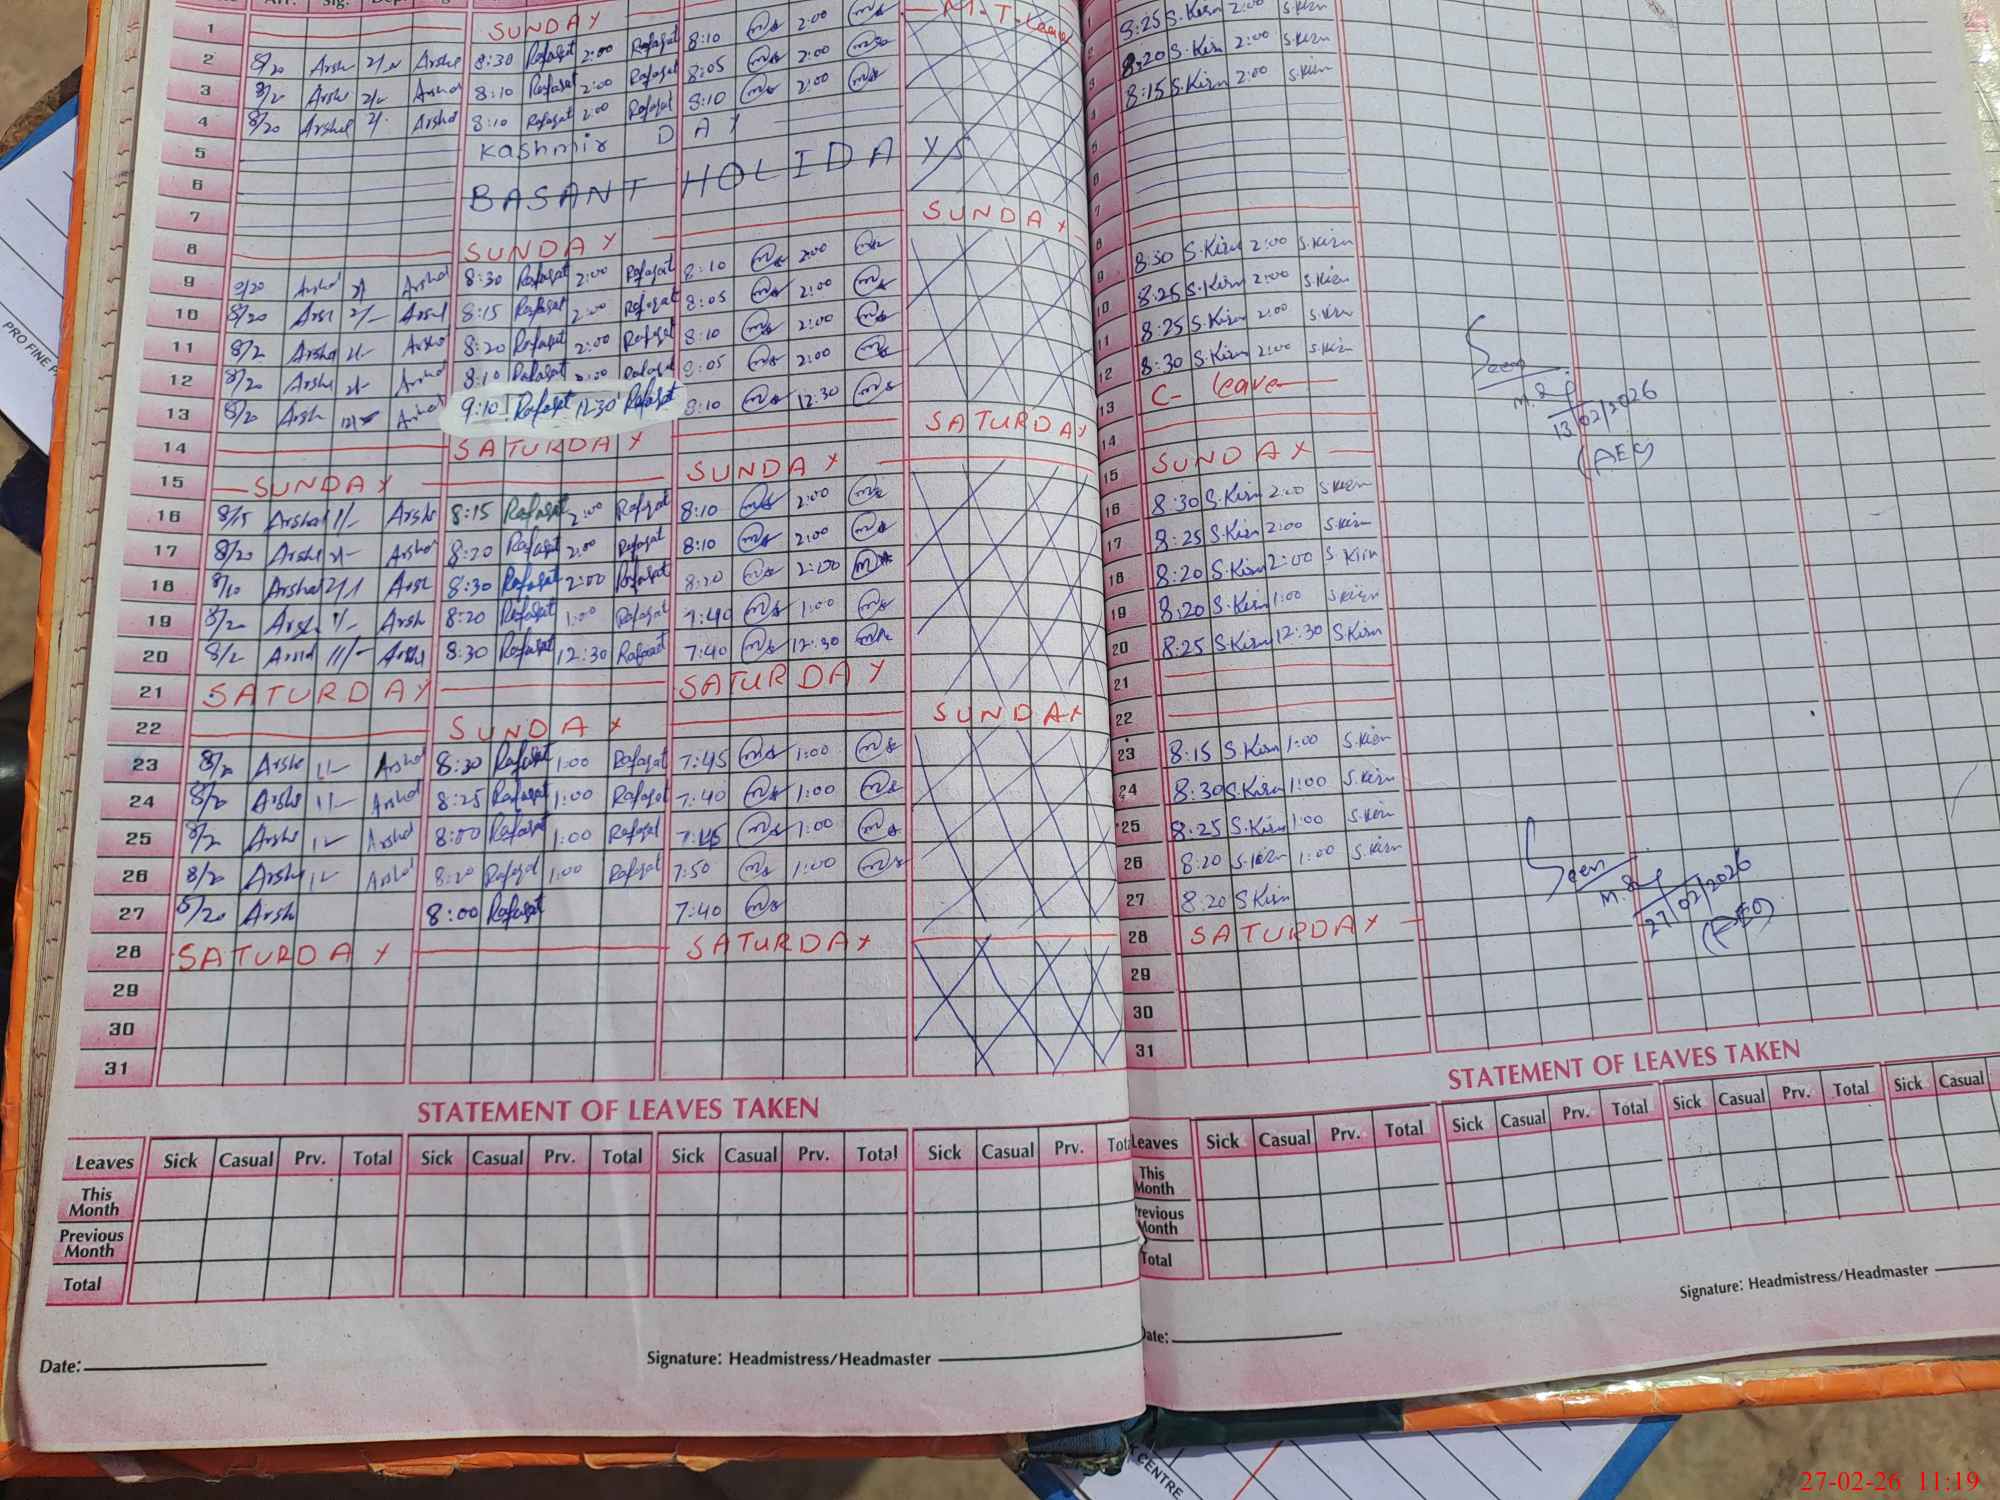 1 SUNDAY M-T-Leave
2 8/20 Arsh Arshe 8:30 Rafaqat 2:00 Rafaqat 8:10 2:00
3 8/2 Arshe 2/- Arshad 8:10 Rafaqat 2:00 Rafaqat 8:05 2:00
4 8/20 Arshe 2/- Arshad 8:10 Rafaqat 2:00 Rafaqat 8:10 2:00
5 Kashmir DAY
6 BASANT HOLIDAYS
7 SUNDAY
8 SUNDAY
9 8/20 Arshad Arshad 8:30 Rafaqat 2:00 Rafaqat 8:10 2:00
10 8/20 2/- 8:15 Rafaqat 2:00 Rafaqat 8:05 2:00
11 8/2 Arsha Arsho 8:20 Rafaqat 2:00 Rafaqat 8:10 2:00
12 8/20 Arshe 8:10 Rafaqat 2:00 Rafaqat 8:05 2:00
13 8/20 Arsh 9:10 Rafaqat 12:30 Rafaqat 8:10 12:30
14 SATURDAY SATURDAY
15 SUNDAY SUNDAY
16 8/15 Arshad 1/- Arshe 8:15 Rafaqat 2:00 Rafaqat 8:10 2:00
17 8/20 Arshe Arshad 8:20 Rafaqat 2:00 Rafaqat 8:10 2:00
18 8/10 Arshad Arsh 8:30 Rafaqat 2:00 Rafaqat 8:20 2:00
19 8/20 Arsh 1/- Arsh 8:20 Rafaqat 1:00 Rafaqat 7:40 1:00
20 8/2 8:30 Rafaqat 12:30 Rafaqat 7:40 12:30
21 SATURDAY SATURDAY
22 SUNDAY SUNDAY
23 8/20 Arshe Arshad 8:30 Rafaqat 1:00 Rafaqat 7:45 1:00
24 8/20 Arshe Arshad 8:25 Rafaqat 1:00 Rafaqat 7:40 1:00
25 8/2 Arshe Arshad 8:00 Rafaqat 1:00 Rafaqat 7:45 1:00
26 8/20 Arshe Arshad 8:20 Rafaqat 1:00 Rafaqat 7:50 1:00
27 8/20 Arsh 8:00 Rafaqat 7:40
28 SATURDAY SATURDAY
29
30
31
STATEMENT OF LEAVES TAKEN
Leaves Sick Casual Prv. Total Sick Casual Prv. Total Sick Casual Prv. Total Sick Casual Prv.
This Month
Previous Month
Total
Date:
Signature: Headmistress/Headmaster
1 8:25 S.Kirn 2:00 S.Kirn
2 8:20 S.Kirn 2:00 S.Kirn
3 8:15 S.Kirn 2:00 S.Kirn
4
5
6
7
8
9 8:30 S.Kirn 2:00 S.Kirn
10 8:25 S.Kirn 2:00 S.Kirn
11 8:25 S.Kirn 2:00 S.Kirn
12 8:30 S.Kirn 2:00 S.Kirn
13 C- leave
14
15 SUNDAY
16 8:30 S.Kirn 2:00 S.Kirn
17 8:25 S.Kirn 2:00 S.Kirn
18 8:20 S.Kirn 2:00 S.Kirn
19 8:20 S.Kirn 1:00 S.Kirn
20 8:25 S.Kirn 12:30 S.Kirn
21
22
23 8:15 S.Kirn 1:00 S.Kirn
24 8:30 S.Kirn 1:00 S.Kirn
25 8:25 S.Kirn 1:00 S.Kirn
26 8:20 S.Kirn 1:00 S.Kirn
27 8:20 S.Kirn
28 SATURDAY
29
30
31
Seen
13/02/2026
(AEO)
Seen
27/02/2026
STATEMENT OF LEAVES TAKEN
Leaves Sick Casual Prv. Total Sick Casual Prv. Total Sick Casual Prv. Total Sick Casual
This Month
Previous Month
Total
Signature: Headmistress/Headmaster
PRO FINE
CENTRE
27-02-26 11:19